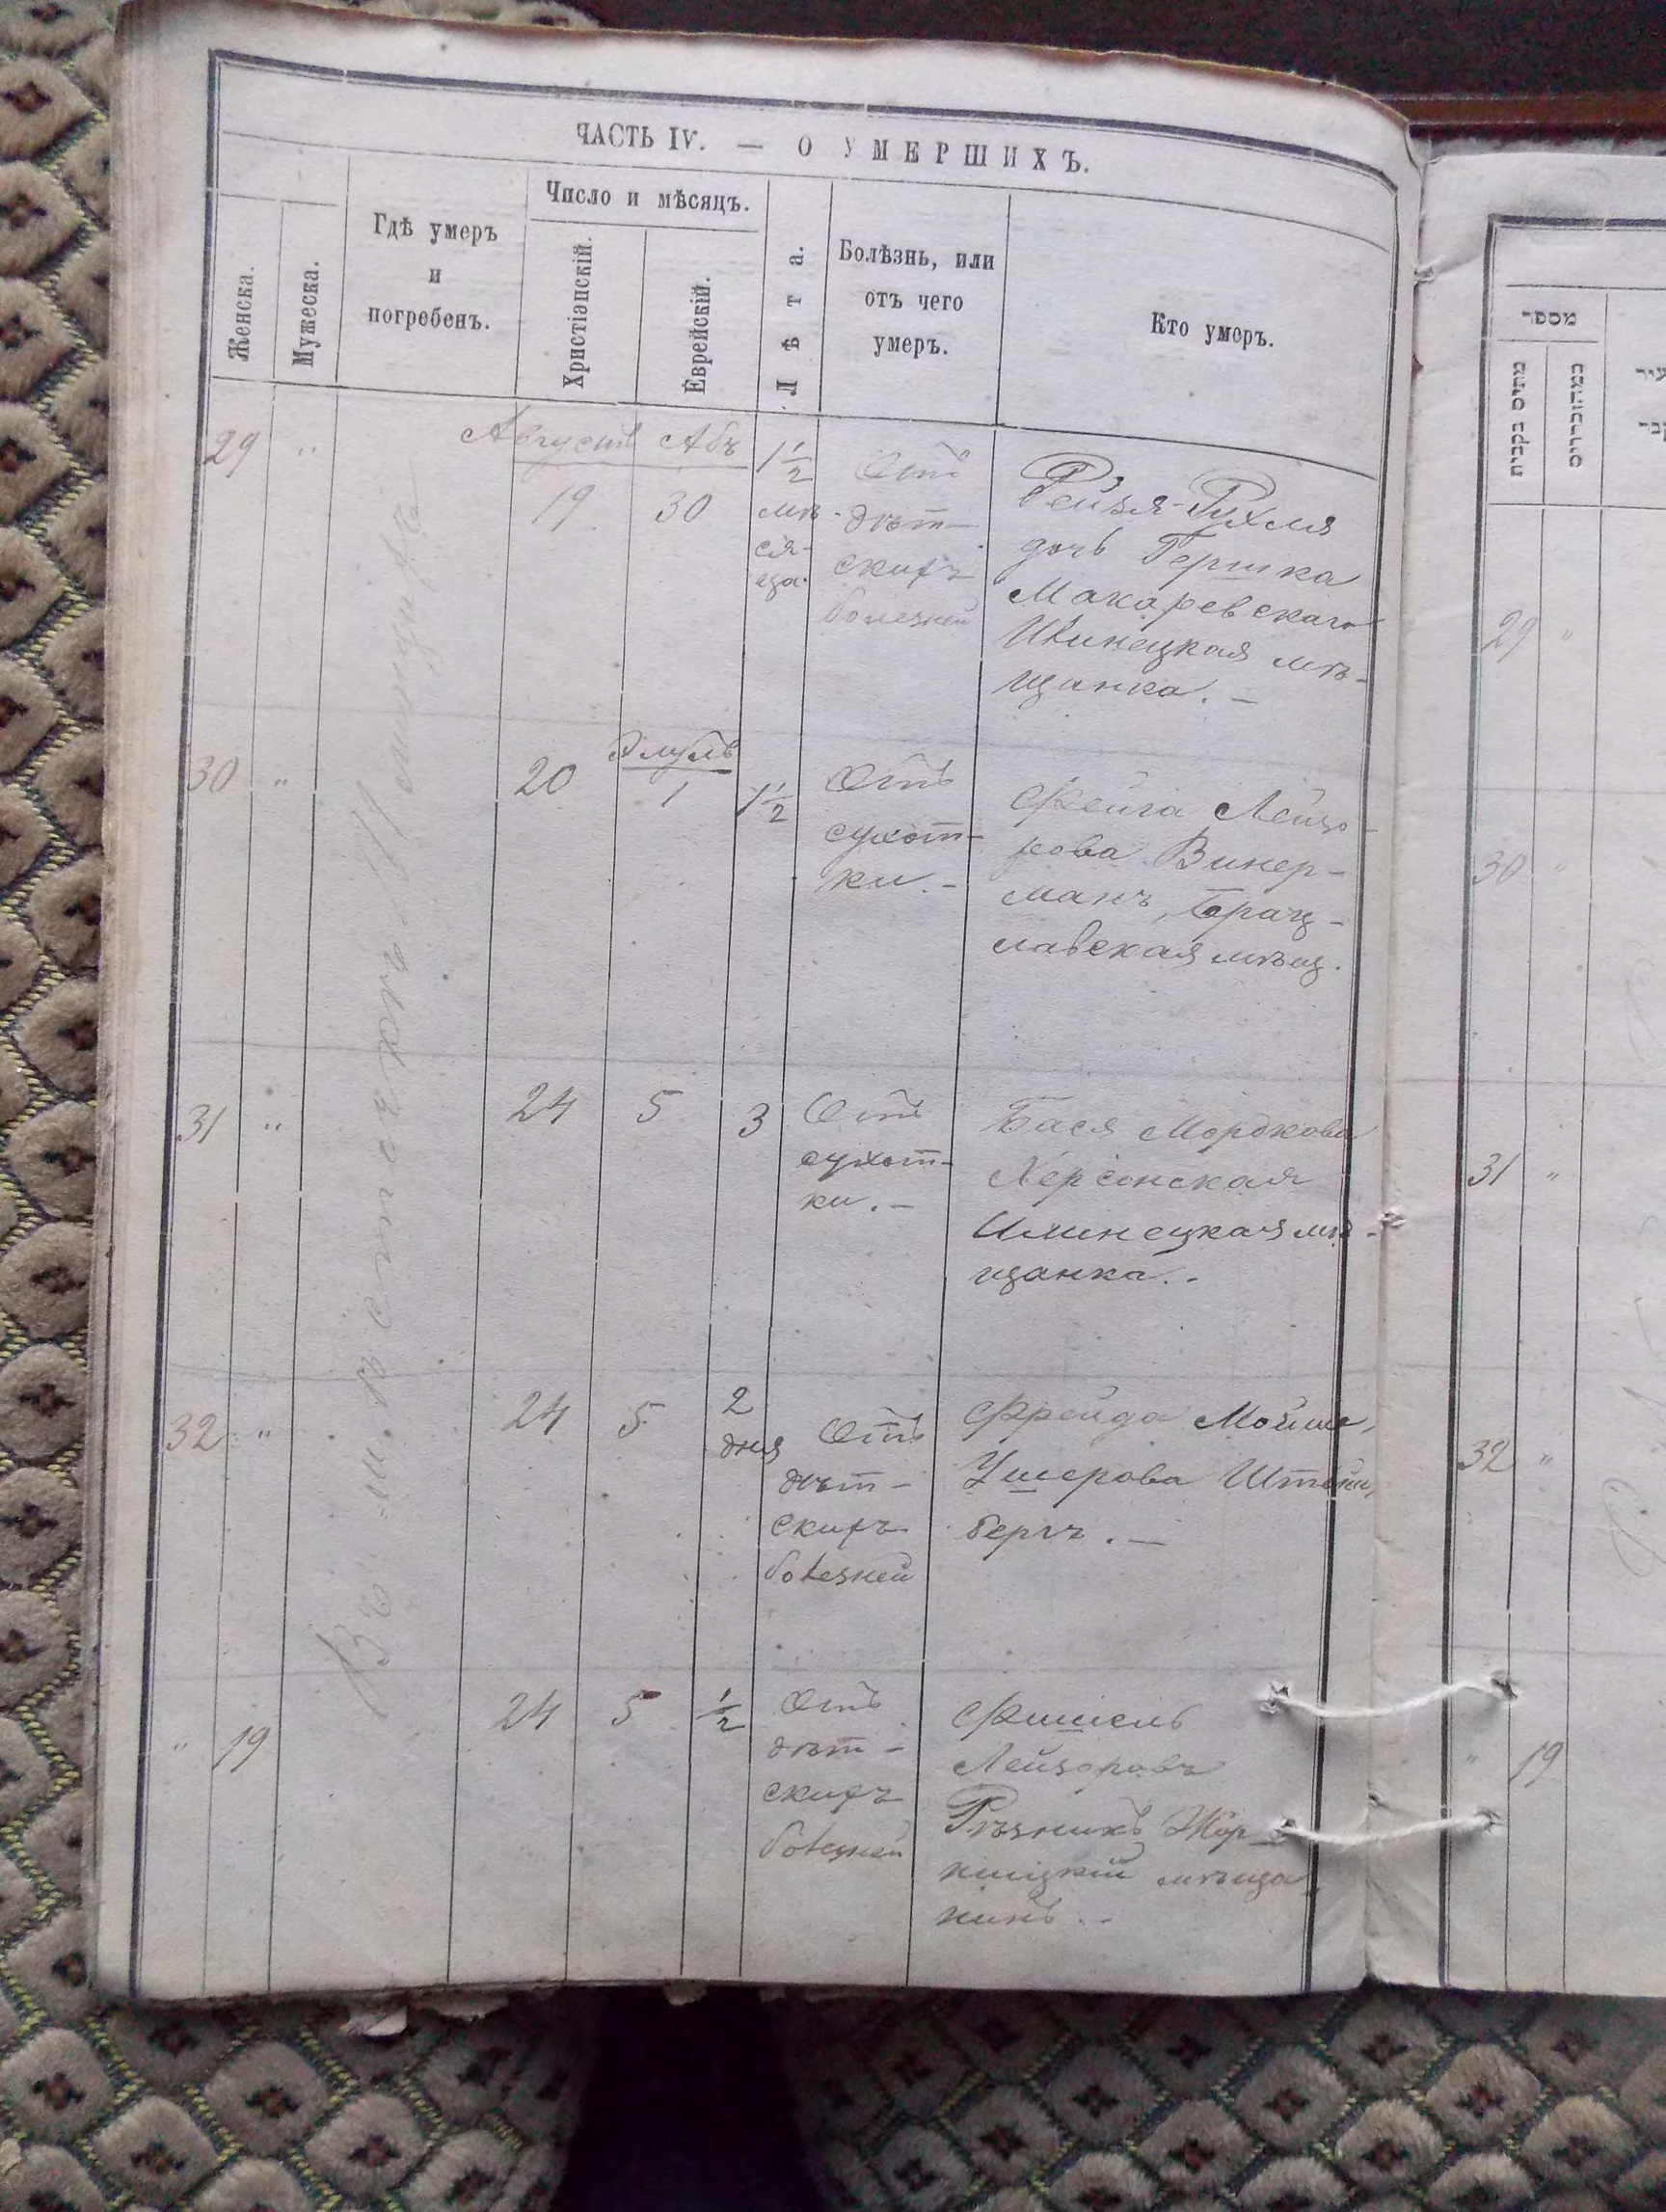 ЧАСТЬ IV. — О УМЕРШИХЪ.
Женска.
Мужеска.
Гдѣ умеръ
и
погребенъ.
Число и мѣсяцъ.
Христіанскій.
Еврейскій.
Лѣта.
Болѣзнь, или
отъ чего
умеръ.
Кто умеръ.
29 "
Августъ Абъ
19 30
1½
мѣ-
ся-
ца.
Отъ
дѣт-
скихъ
болезней
Рейзя-Рухля
дочь Гершка
Макаревскаго
мѣ-
щанка. —
30 "
20
Элулъ
1
1½
Отъ
сухот-
ки. -
Фейга Лейзо-
рова Винер-
манъ, Брац-
лавская мѣщ.
31 "
24 5 3
Отъ
сухот-
ки. -
Бася Мордкова
Херсонская
Илинецкая мѣ-
щанка. -
32 "
24 5
2
дня
Отъ
дѣт-
скихъ
болезней
Фрейда Мойше,
Ушерова Штейн,
бергъ. —
" 19
24 5 ½
Отъ
дѣт-
скихъ
болезней
Фишель
Лейзоровъ
Рѣзникъ Жор-
нищкій мѣща-
нинъ. -
Въ м.
מספר
29 "
30 "
31 "
32 "
" 19